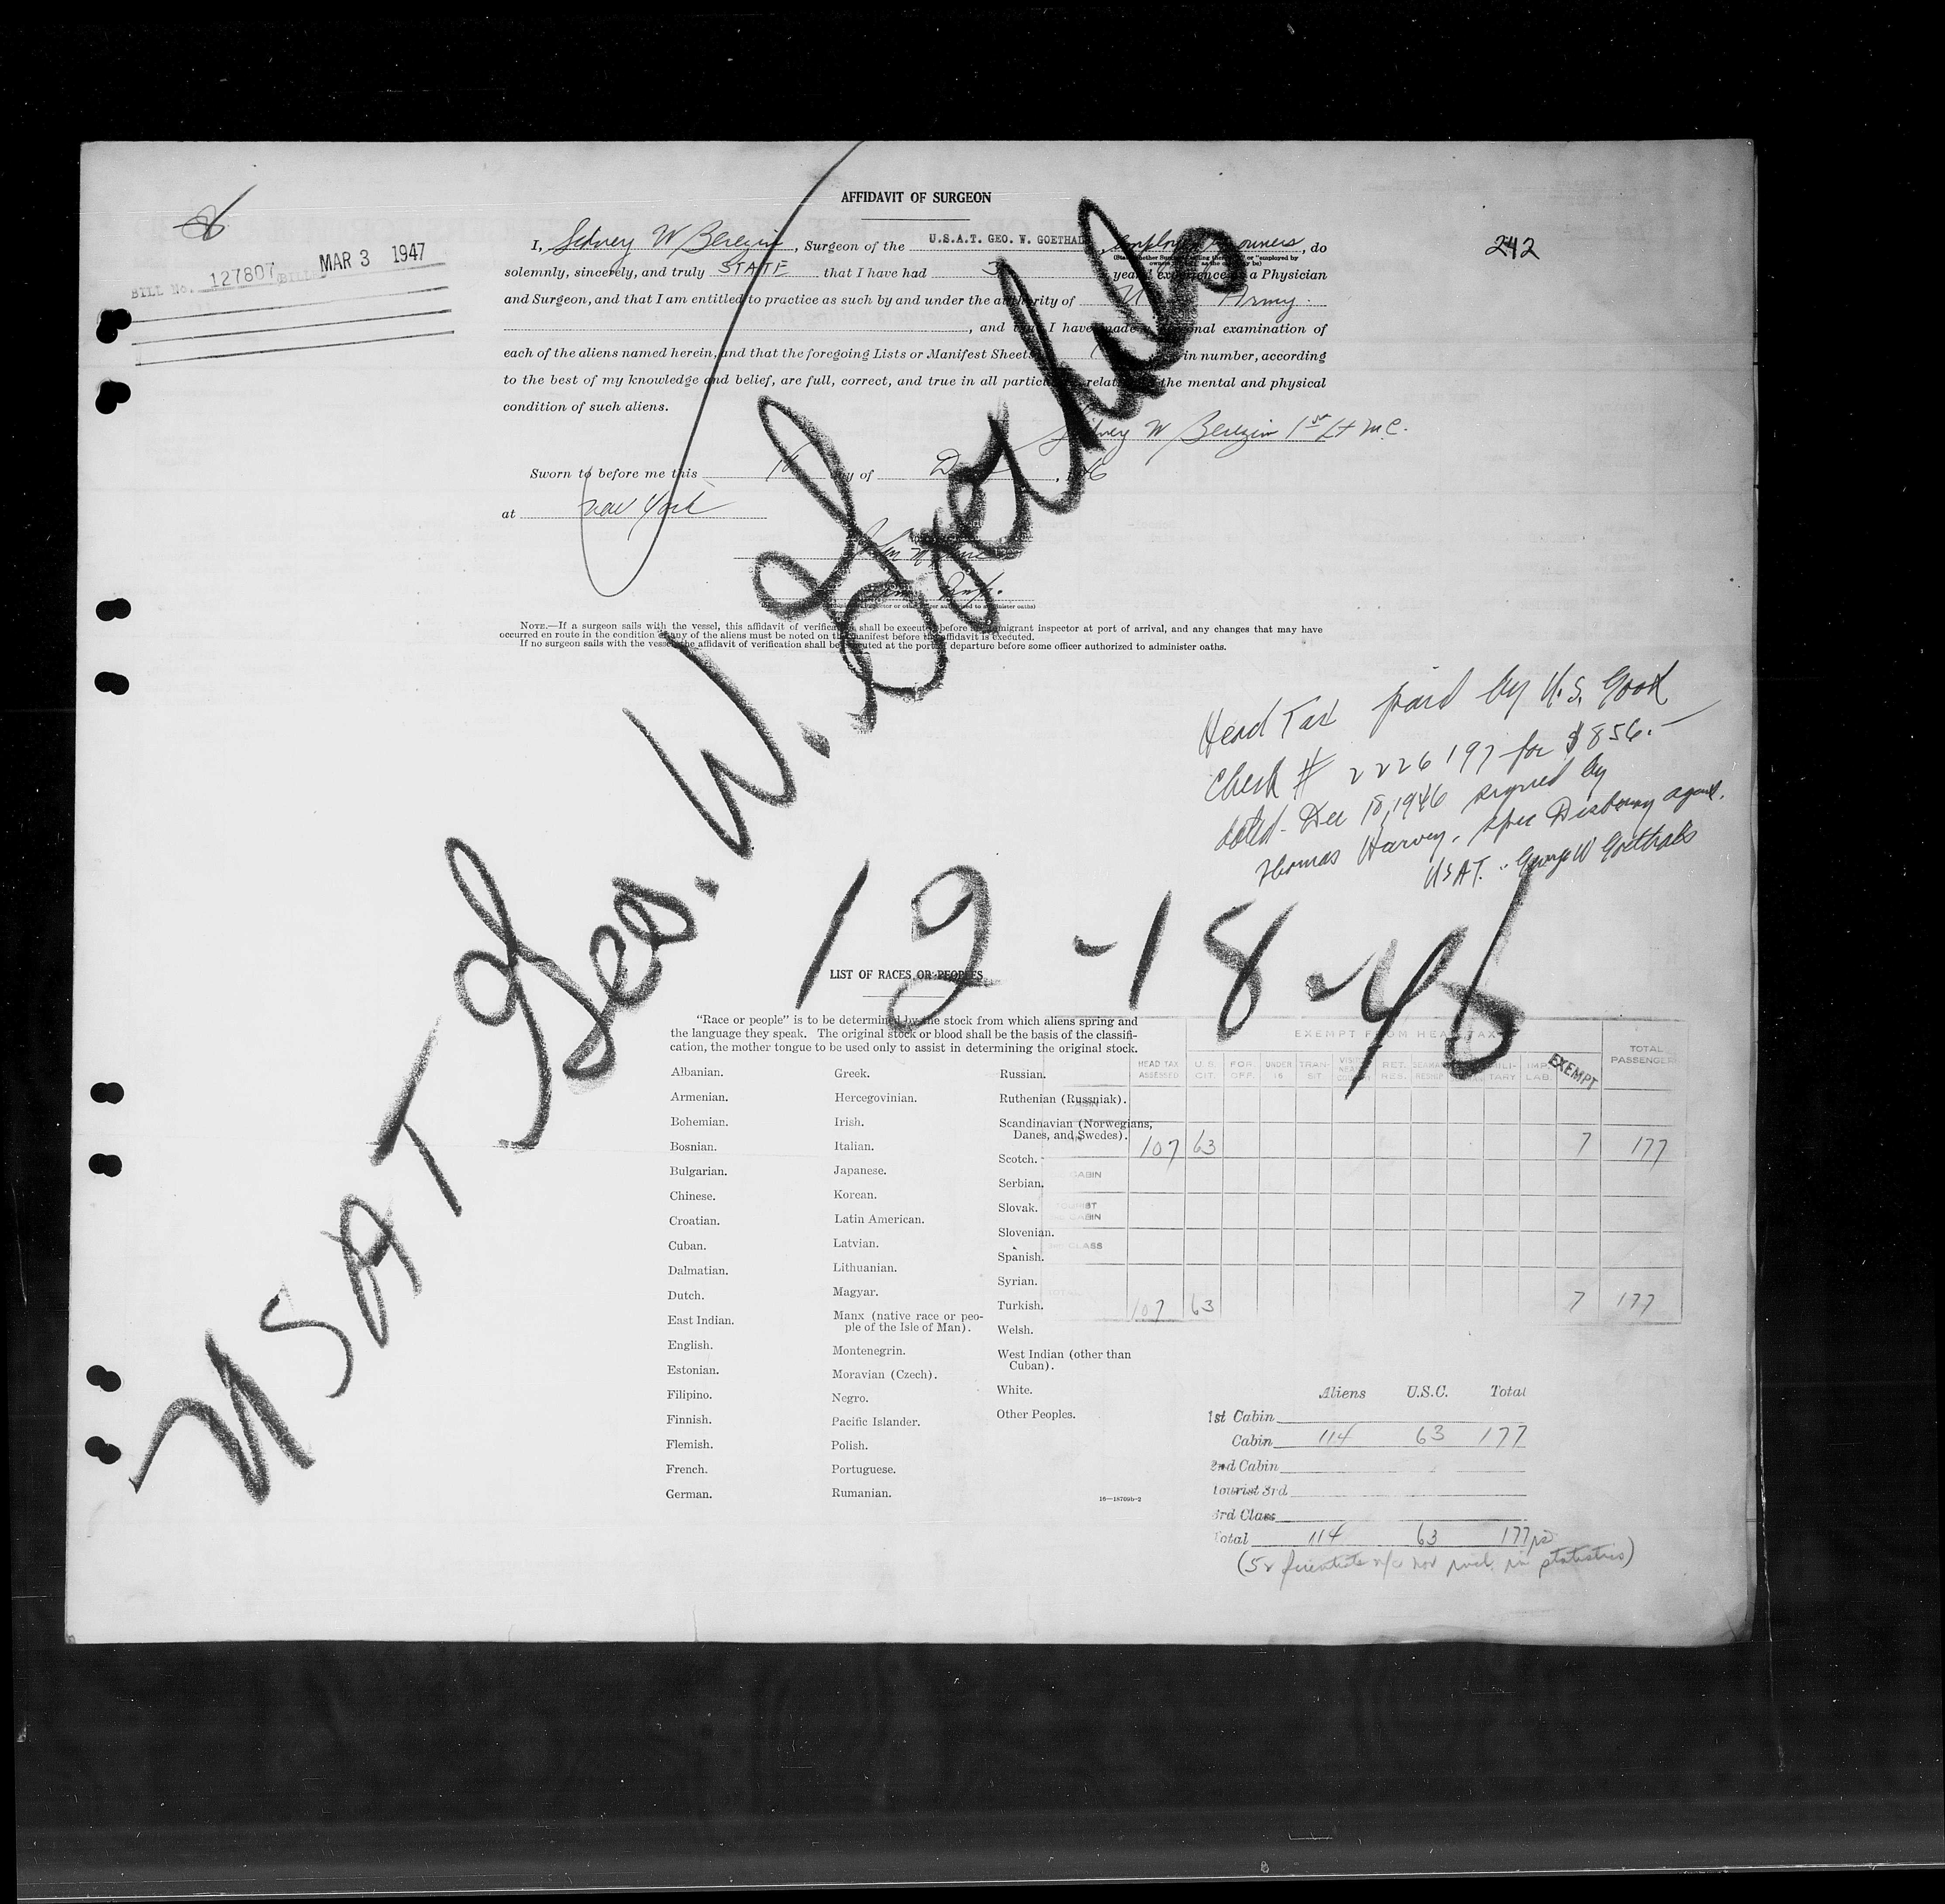 AFFIDAVIT OF SURGEON
242
BILL No. 127807 MAR 3 1947
I, Sidney W Berezin, Surgeon of the U.S.A.T. GEO. W. GOETHALS, employed owners, do
solemnly, sincerely, and truly STATE that I have had 3 years' experience as a Physician
and Surgeon, and that I am entitled to practice as such by and under the authority of U.S. Army.
, and that I have made a personal examination of
each of the aliens named herein, and that the foregoing Lists or Manifest Sheets, in number, according
to the best of my knowledge and belief, are full, correct, and true in all particulars relative to the mental and physical
condition of such aliens.
Sidney W Berezin 1st Lt M.C.
Sworn to before me this 18 day of Dec, 1946
at New York
NOTE.—If a surgeon sails with the vessel, this affidavit of verification shall be executed before an immigrant inspector at port of arrival, and any changes that may have
occurred en route in the condition of any of the aliens must be noted on the manifest before the affidavit is executed.
If no surgeon sails with the vessel, the affidavit of verification shall be executed at the port of departure before some officer authorized to administer oaths.
USAT Geo. W. Goethals
12-18-46
Head Tax paid by U.S. Govt
Check # 2226197 for $856.—
dated Dec 18, 1946 signed by
Thomas Harvey, Spec Disbursing agent.
USAT. George W Goethals
LIST OF RACES OR PEOPLES
"Race or people" is to be determined by the stock from which aliens spring and
the language they speak. The original stock or blood shall be the basis of the classifi-
cation, the mother tongue to be used only to assist in determining the original stock.
Albanian.
Armenian.
Bohemian.
Bosnian.
Bulgarian.
Chinese.
Croatian.
Cuban.
Dalmatian.
Dutch.
East Indian.
English.
Estonian.
Filipino.
Finnish.
Flemish.
French.
German.
Greek.
Hercegovinian.
Irish.
Italian.
Japanese.
Korean.
Latin American.
Latvian.
Lithuanian.
Magyar.
Manx (native race or peo-
ple of the Isle of Man).
Montenegrin.
Moravian (Czech).
Negro.
Pacific Islander.
Polish.
Portuguese.
Rumanian.
Russian.
Ruthenian (Russniak).
Scandinavian (Norwegians,
Danes, and Swedes).
Scotch.
Serbian.
Slovak.
Slovenian.
Spanish.
Syrian.
Turkish.
Welsh.
West Indian (other than
Cuban).
White.
Other Peoples.
16—18709b-2
EXEMPT FROM HEAD TAX
HEAD TAX ASSESSED U.S. CIT. FOR. OFF. UNDER 16 TRAN-SIT RET. RES. MILI-TARY IMP. LAB. EXEMPT TOTAL PASSENGERS
CABIN
107 63 7 177
CABIN
TOURIST
CABIN
CLASS
107 63 7 177
Aliens U.S.C. Total
1st Cabin
Cabin 114 63 177
2nd Cabin
Tourist 3rd
3rd Class
Total 114 63 177
(52 scientists not incl. in statistics)